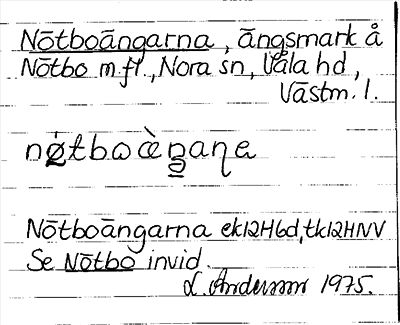 Nötboängarna, ängsmark å
Nötbo m.fl., Nora sn, Våla hd,
Västm. l.
nǿtbωὲŋaɳa
Nötboängarna ek12H6d, tk12HNV
Se Nötbo invid.
L. Anderson 1975.